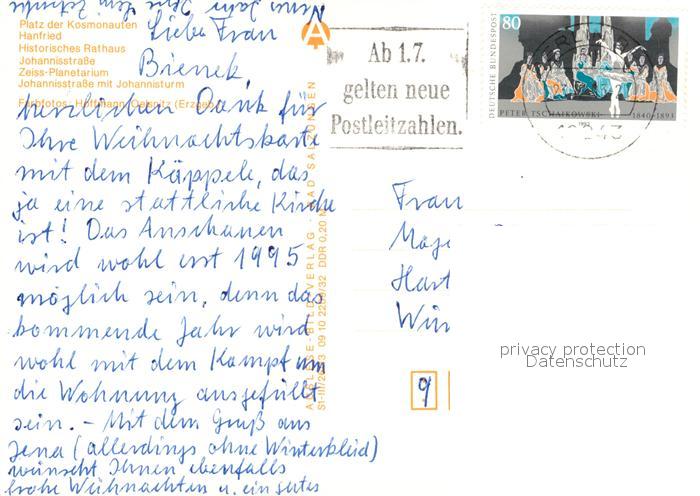 Platz der Kosmonauten
Hanfried
Historisches Rathaus
Johannisstraße
Zeiss-Planetarium
Johannisstraße mit Johannisturm
Farbfotos: Hoffmann, Oelsnitz (Erzgeb.)
Liebe Frau
Bienek,
herzlichen Dank für
Ihre Weihnachtskarte
mit dem Käppele, das
ja eine stattliche Kirche
ist! Das Anschauen
wird wohl erst 1995
möglich sein, denn das
kommende Jahr wird
wohl mit dem Kampf um
die Wohnung ausgefüllt
sein. - Mit dem Gruß aus
Jena (allerdings ohne Winterkleid)
wünscht Ihnen ebenfalls
frohe Weihnachten u. ein gutes
Neues Jahr Ihre
A
AUSLESE-BILD-VERLAG · BAD SALZUNGEN
DDR 0,20 M
Ab 1.7.
gelten neue
Postleitzahlen.
80
DEUTSCHE BUNDESPOST
PETER TSCHAIKOWSKI 1840-1893
Frau
Hart
9
privacy protection
Datenschutz